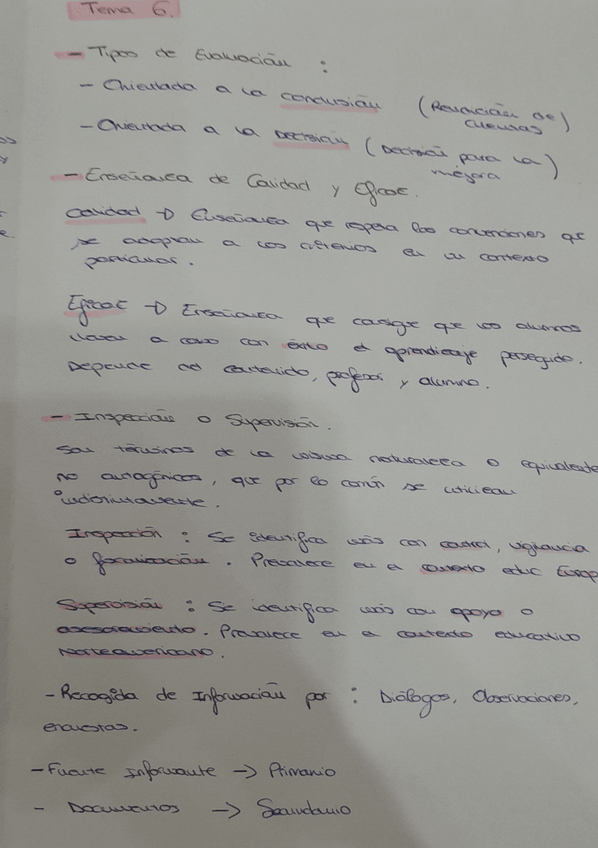 Tema 6.
- Tipos de Evaluación :
- Orientada a la conclusión (Rendición de cuentas)
- Orientada a la Decisión (Decisión para la mejora)
- Enseñanza de Calidad y Eficaz.
Calidad → Enseñanza que respeta las convenciones que
se adaptan a los criterios en un contexto
particular.
Eficaz → Enseñanza que consigue que los alumnos
llevan a cabo con éxito el aprendizaje perseguido.
Depende del contenido, profesor y alumno.
- Inspección o Supervisión.
Son términos de la misma naturaleza o equivalente
no antagónicos, que por lo común se utilizan
indistintamente.
Inspección : Se identifica más con control, vigilancia
o fiscalización. Prevalece en el contexto educ Europ
Supervisión : Se identifica más con apoyo o
asesoramiento. Prevalece en el contexto educativo
norteamericano.
- Recogida de Información por : Diálogos, Observaciones,
encuestas.
- Fuente Informante → Primario
- Documentos → Secundario